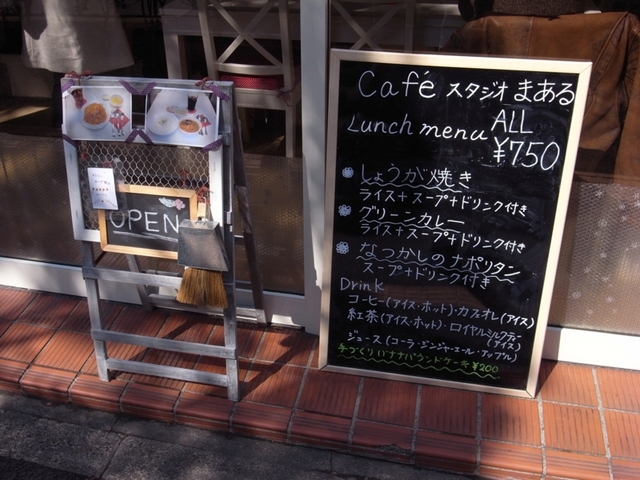 Café スタジオ まある
Lunch menu ALL ¥750
しょうが焼き
ライス+スープ+ドリンク付き
グリーンカレー
ライス+スープ+ドリンク付き
なつかしのナポリタン
スープ+ドリンク付き
Drink
コーヒー(アイス・ホット)・カフェオレ(アイス)
紅茶(アイス・ホット)・ロイヤルミルクティー(アイス)
ジュース(コーラ・ジンジャーエール・アップル)
手づくりバナナパウンドケーキ¥200
OPEN